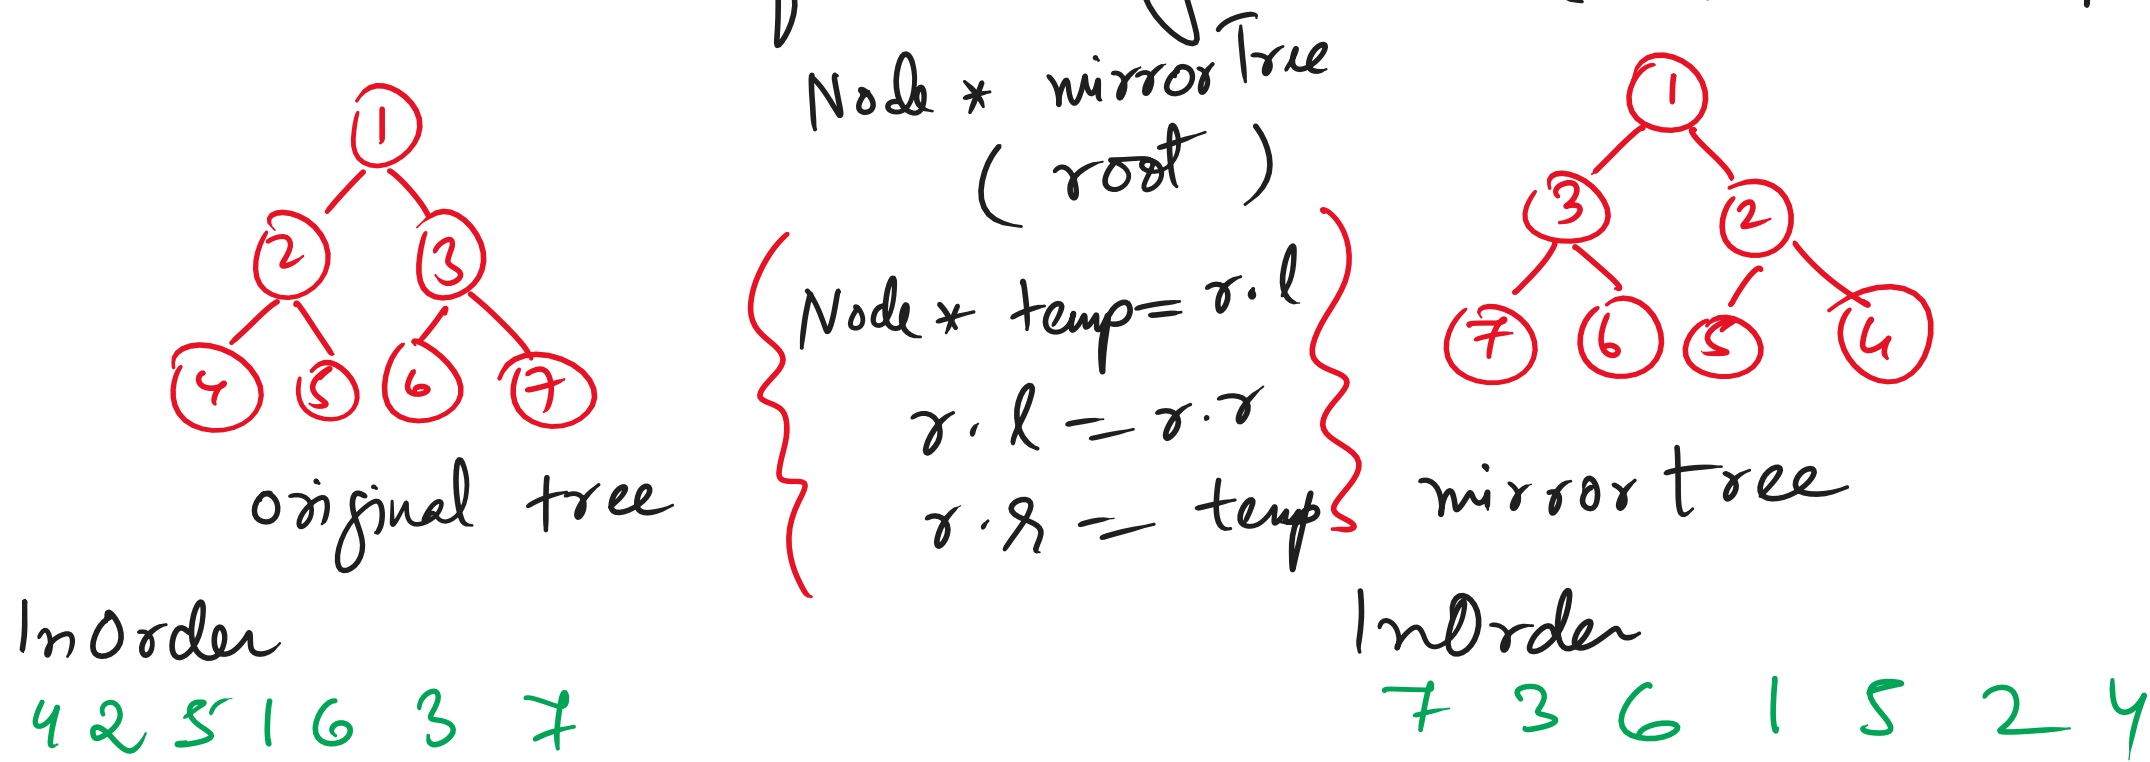 1
2 3
4 5 6 7
original tree
InOrder
4 2 5 1 6 3 7
Node * mirrorTree
( root )
{ Node * temp = r.l
r.l = r.r
r.r = temp }
1
3 2
7 6 5 4
mirror tree
InOrder
7 3 6 1 5 2 4